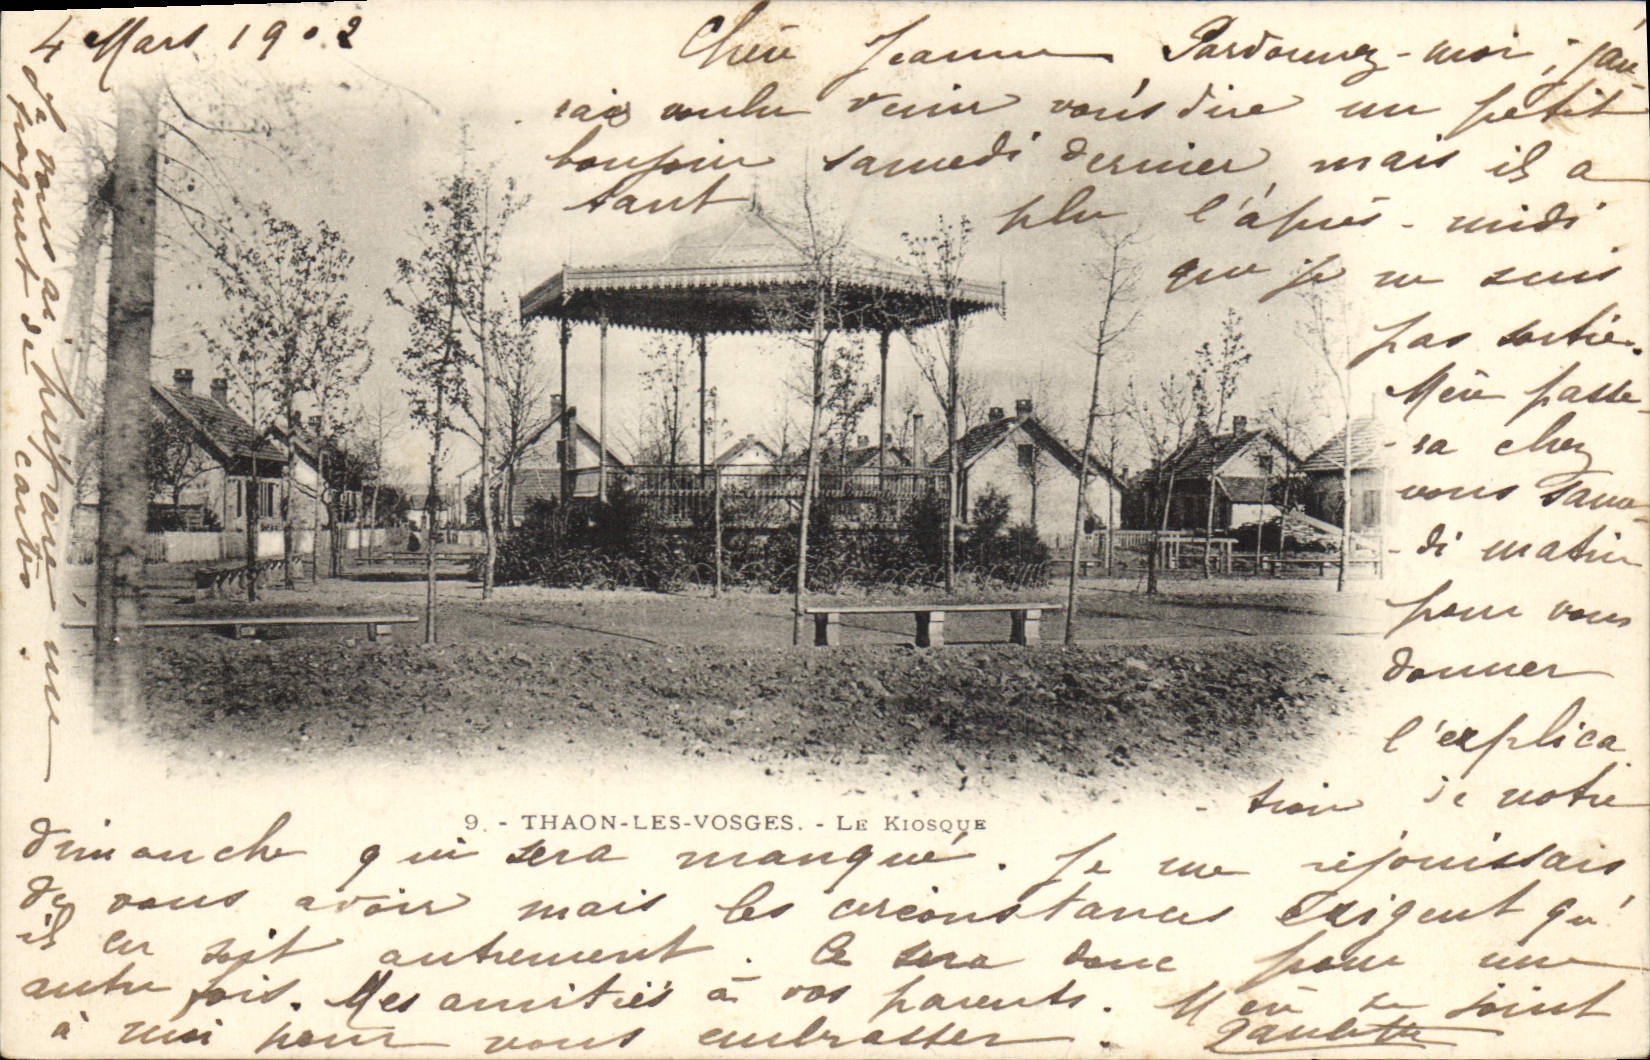 4 Mars 1902
Chère Jeanne Pardonnez-moi, j'au-
rais voulu venir vous dire un petit
bonjour samedi dernier mais il a
tant plu l'après-midi
que je ne suis
pas sortie.
Mère passe-
-ra chez
vous same-
-di matin
pour vous
donner
l'explica
-tion de notre
9. - THAON-LES-VOSGES. - LE KIOSQUE
dimanche qui sera manqué. Je me réjouissais
de vous avoir mais les circonstances exigent qu'
il en soit autrement. Ce sera donc pour une
autre fois. Mes amitiés à vos parents. Mère se joint
à moi pour vous embrasser.
Paulette
Je vous ai préparé un
paquet de cartes.